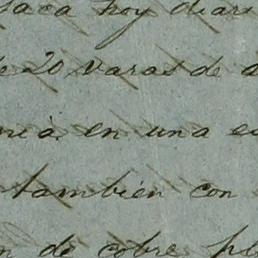 saca hoy diari
e 20 varas de a
en una
también con
de cobre